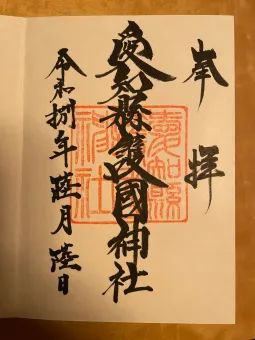 奉拝
愛知縣護國神社
令和捌年陸月陸日
愛知縣
神社